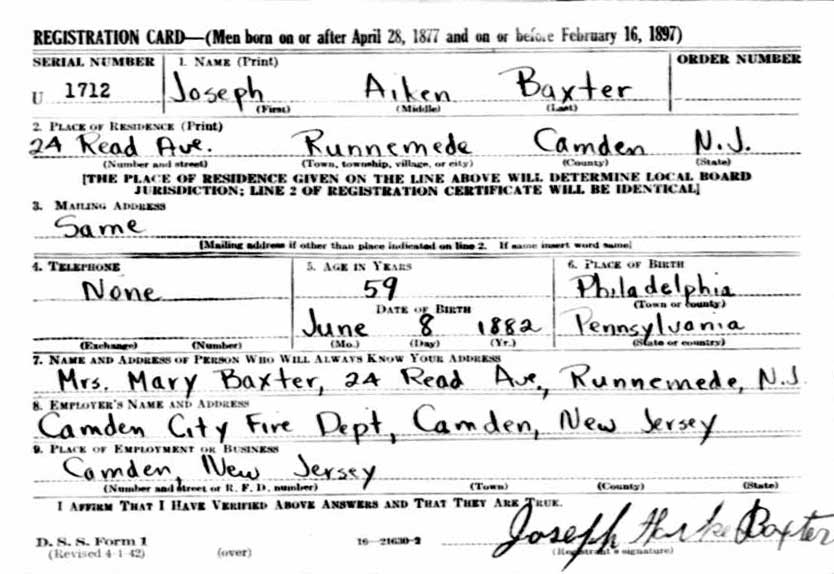 REGISTRATION CARD—(Men born on or after April 28, 1877 and on or before February 16, 1897)
SERIAL NUMBER 1. NAME (Print) ORDER NUMBER
U 1712 Joseph Aiken Baxter
(First) (Middle) (Last)
2. PLACE OF RESIDENCE (Print)
24 Read Ave. Runnemede Camden N.J.
(Number and street) (Town, township, village, or city) (County) (State)
[THE PLACE OF RESIDENCE GIVEN ON THE LINE ABOVE WILL DETERMINE LOCAL BOARD
JURISDICTION; LINE 2 OF REGISTRATION CERTIFICATE WILL BE IDENTICAL]
3. MAILING ADDRESS
Same
[Mailing address if other than place indicated on line 2. If same insert word same]
4. TELEPHONE 5. AGE IN YEARS 6. PLACE OF BIRTH
None 59 Philadelphia
DATE OF BIRTH (Town or county)
June 8 1882 Pennsylvania
(Exchange) (Number) (Mo.) (Day) (Yr.) (State or country)
7. NAME AND ADDRESS OF PERSON WHO WILL ALWAYS KNOW YOUR ADDRESS
Mrs. Mary Baxter, 24 Read Ave., Runnemede, N.J.
8. EMPLOYER'S NAME AND ADDRESS
Camden City Fire Dept, Camden, New Jersey
9. PLACE OF EMPLOYMENT OR BUSINESS
Camden, New Jersey
(Number and street or R. F. D. number) (Town) (County) (State)
I AFFIRM THAT I HAVE VERIFIED ABOVE ANSWERS AND THAT THEY ARE TRUE.
Joseph Baxter
D. S. S. Form 1 16—21630-2
(Revised 4-1-42) (over) (Registrant's signature)